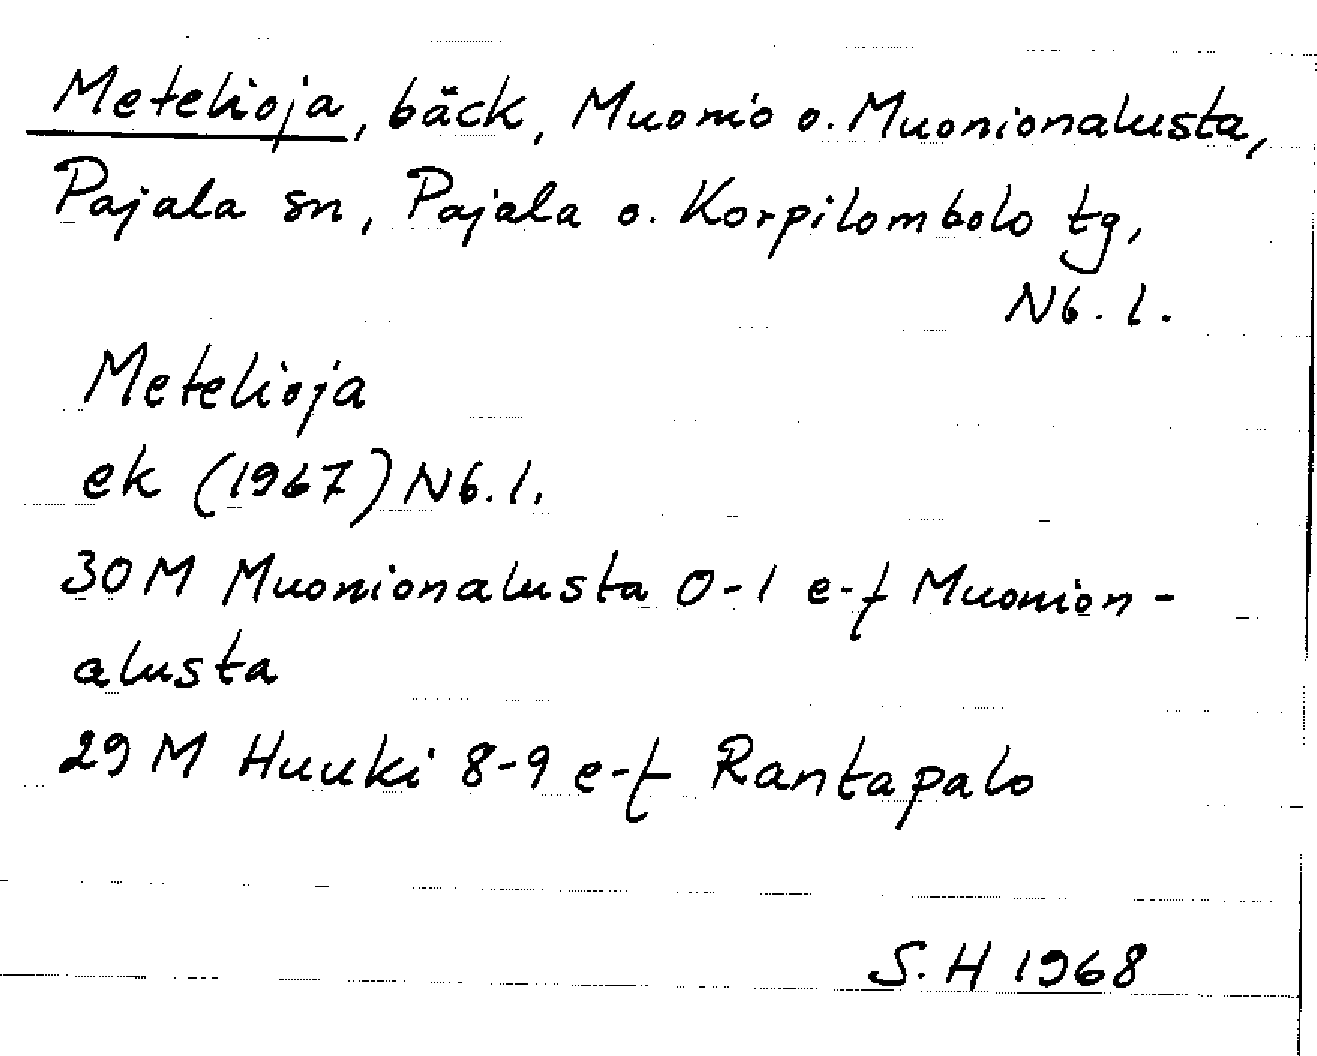 Metelioja, bäck, Muonio o. Muonionalusta,
Pajala sn, Pajala o. Korpilombolo tg,
Nb. l.
Metelioja
ek (1967) Nb. l.
30 M Muonionalusta 0-1 e-f Muonion-
alusta
29 M Huuki 8-9 e-f Rantapalo
S. H 1968